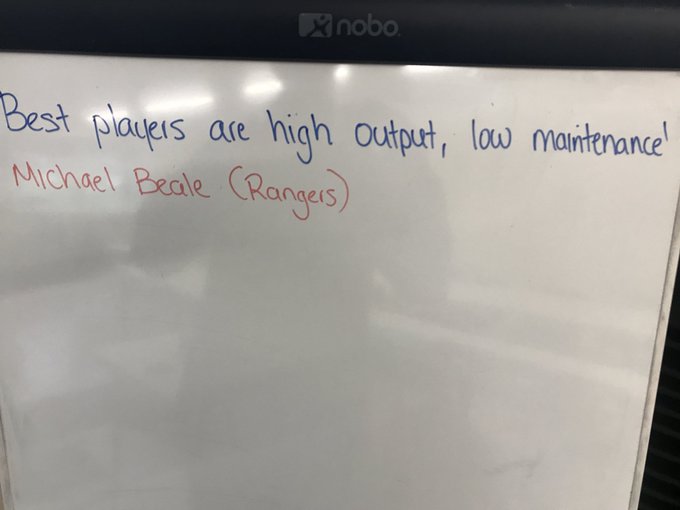 nobo
Best players are high output, low maintenance'
Michael Beale (Rangers)